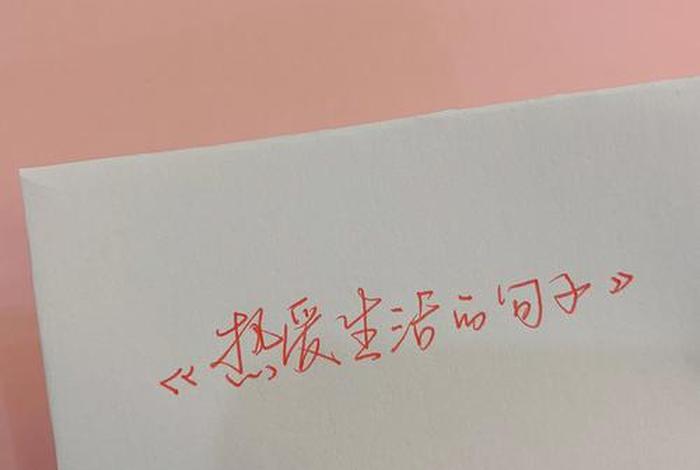 《热爱生活的句子》